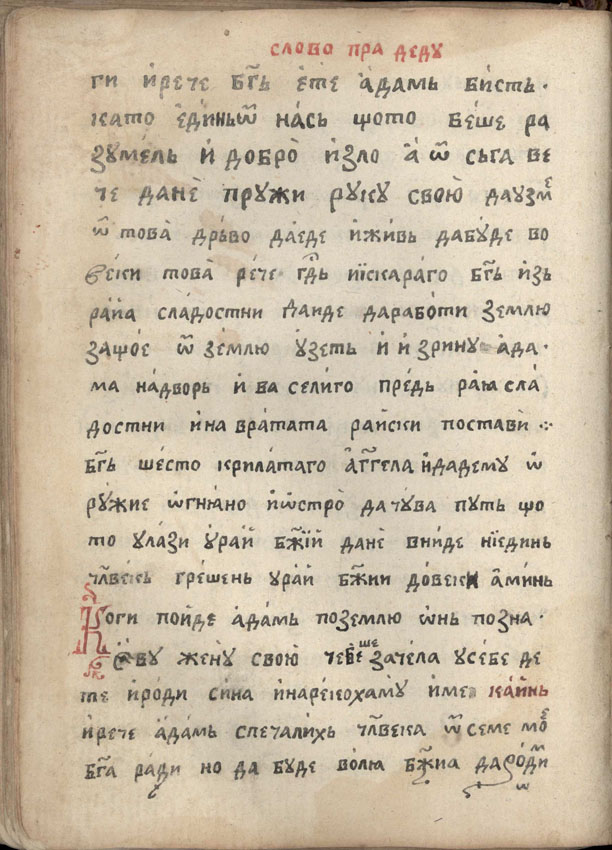 слово пра деду
ги и҆рече бг҃ь е҆те а҆дамь би́сть ·
като е҆ди́ньѿ на́сь що́то бе́ше ра
зуме́ль и҆ добро̀ и҆зло а҆ ѿ сьга ве
че данѐ пружи руку свою̀ даузме
ѿ това̀ дрьво даеде иживь дабуде во
веки това̀ рече гдь и҆искараго бг҃ь и҆зь
ра́йа сла́достни даиде дарабо́ти землю
защое ѿ землю у҆зеть и҆ изрину ада ·
ма на́дворь и҆ ва селиго предь раꙗ сла́
достни ина вра́тата ра́йски постави ·:·
бг҃ь шесто крилатаго а҆гг҃ела идадему ѡ҆
ру́жие ѡ҆гнꙗно иѡ҆стро̀ да чу́ва путь що
то ула́зи у҆рай бж҃ий данѐ вниде ниединь
чл҃векь грешень у҆рай бж҃ии довеки а҆минь
Коги пойде а҆дамь поземлю ѡ҆нь позна ·
еву жену̀ свою̀ чевеше зачела усебе де
те и҆роди сина и҆нарекохаму име каи́нь
и҆рече а҆дамь спечалихь чл҃века ѿ семе мое
бг҃а ра́ди но да буде волꙗ бж҃иа дароди